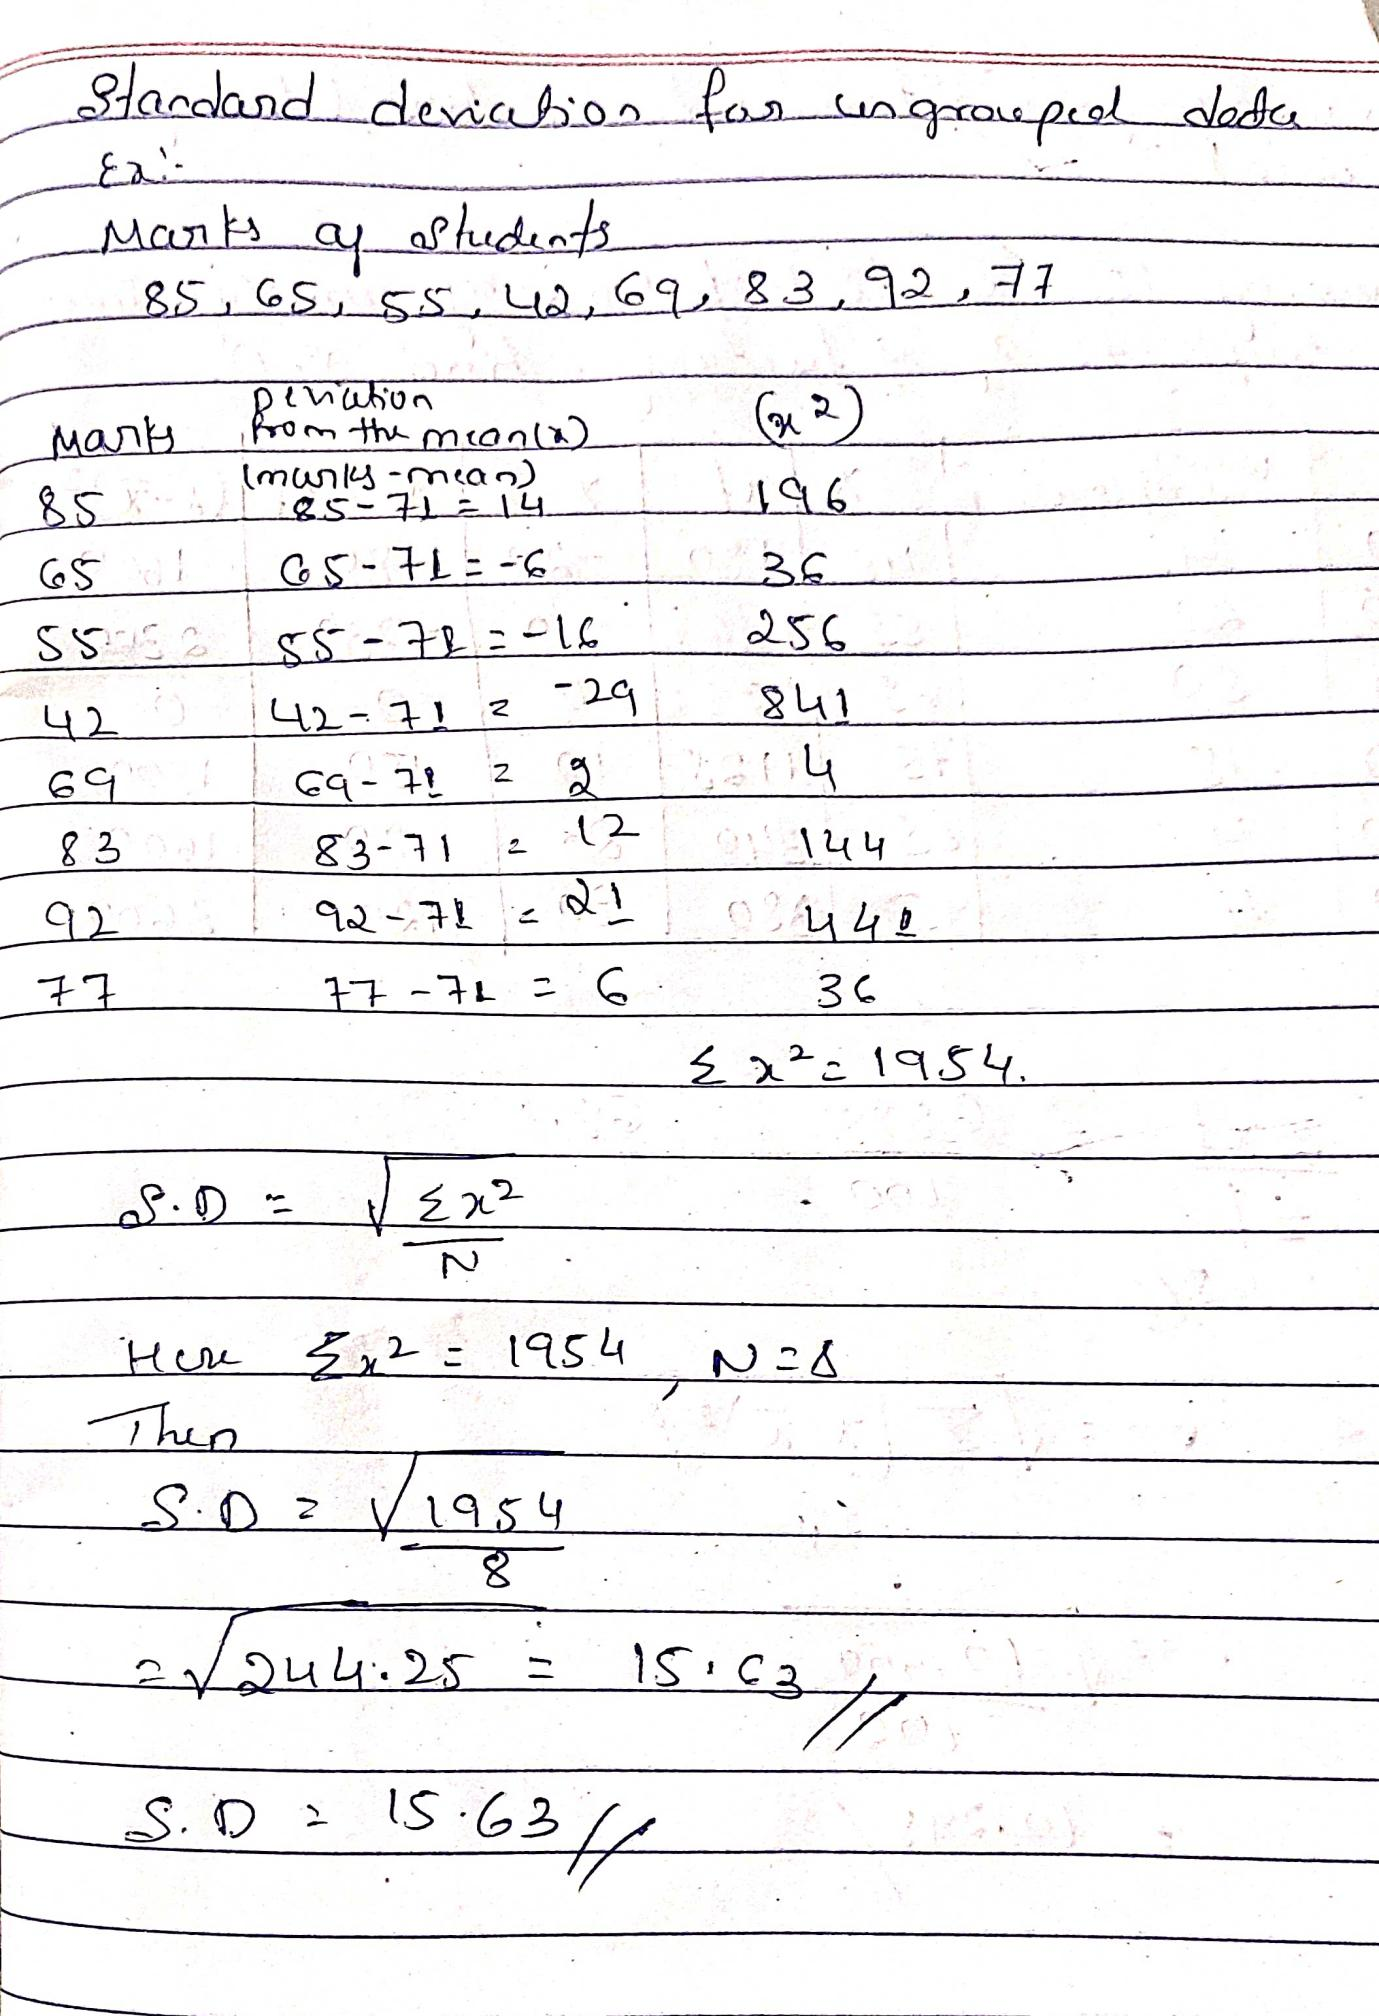 Standard deviation for ungrouped data
Ex:-
Marks of students
85, 65, 55, 42, 69, 83, 92, 77
Marks Deviation from the mean(x) (marks-mean) (x²)
85 85-71 = 14 196
65 65-71 = -6 36
55 55-71 = -16 256
42 42-71 = -29 841
69 69-71 = 2 4
83 83-71 = 12 144
92 92-71 = 21 441
77 77-71 = 6 36
Σx² = 1954.
S.D = √Σx²/N
Here Σx² = 1954, N=8
Then
S.D = √1954/8
= √244.25 = 15.63//
S.D = 15.63//